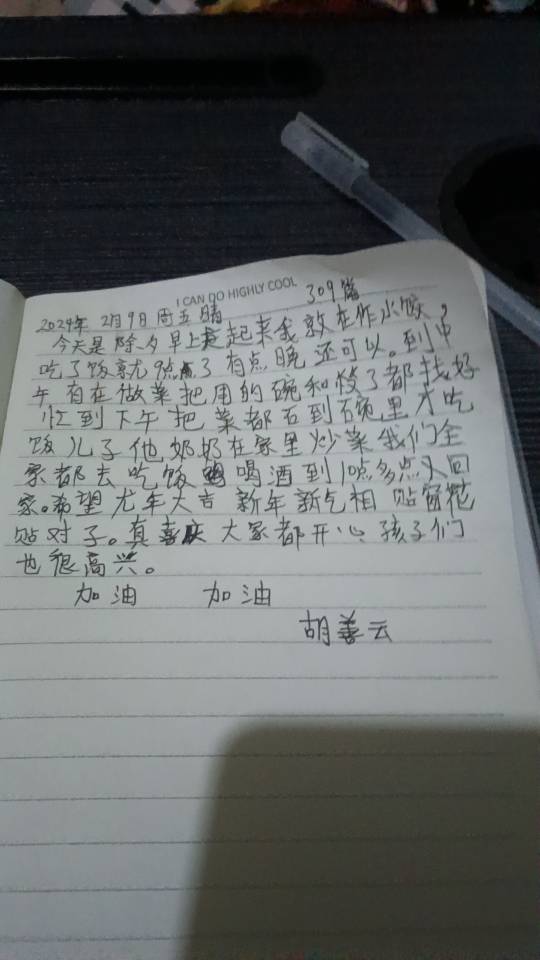 I CAN DO HIGHLY COOL
309篇
2024年 2月9日 周五 晴
今天是 除夕早上起来我敦在作水饺,
吃了饭就9点了有点晚还可以。到中
午有在做菜把用的碗和筷了都找好
忙到下午把菜都石到碗里才吃
饭儿子他奶奶在家里炒菜我们全
家都去吃饭喝酒到10点多点又回
家。希望尤年大吉 新年新气相 贴窗花
贴对子。真喜庆 大家都开心 孩子们
也很高兴。
加油 加油
胡善云